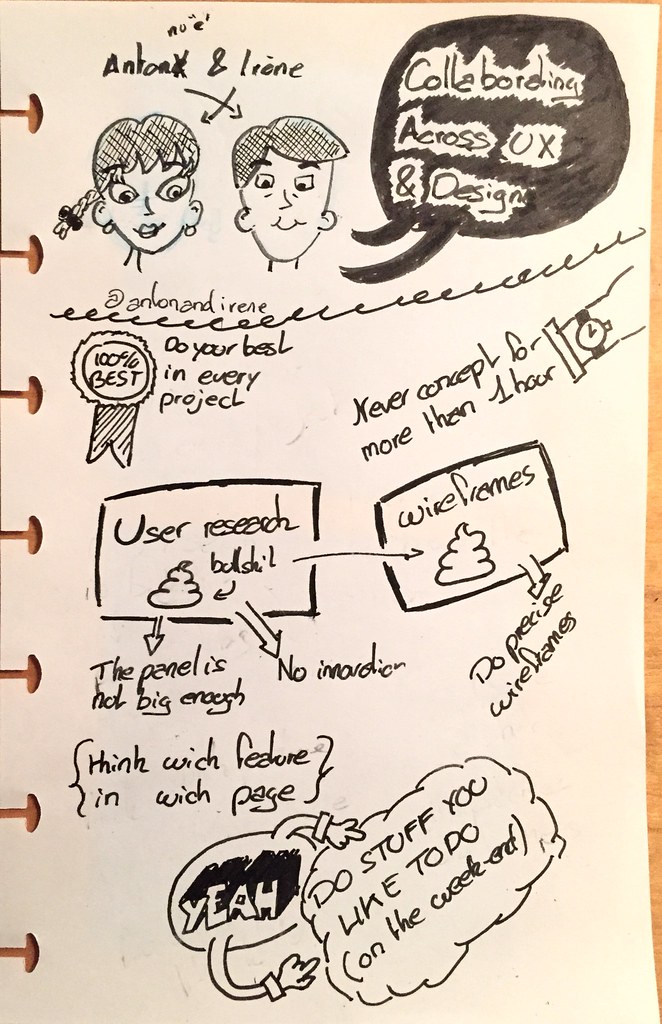 no "e"
Anton & Irène
Collaborating
Across UX
& Design
@antonandirene
100%
BEST
Do your best
in every
project
Never concept for
more than 1 hour
User research
bullshit
wireframes
The panel is
not big enough
No innovation
Do precise
wireframes
{think wich feature}
{in wich page}
YEAH
DO STUFF YOU
LIKE TO DO
(on the week-end)